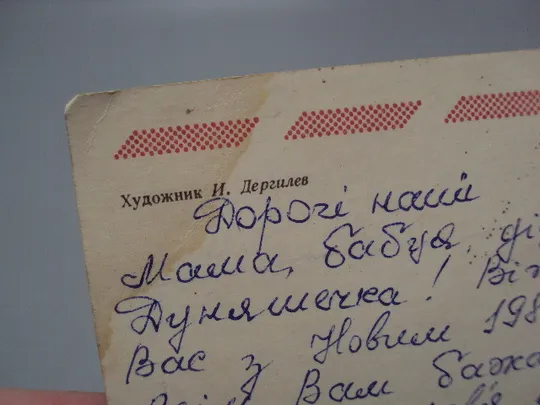 Художник И. Дергилев
Дорогі наші
Мама, бабуя, ді
Дуняшечка! Віт
Вас з Новим 198
Вам бажа